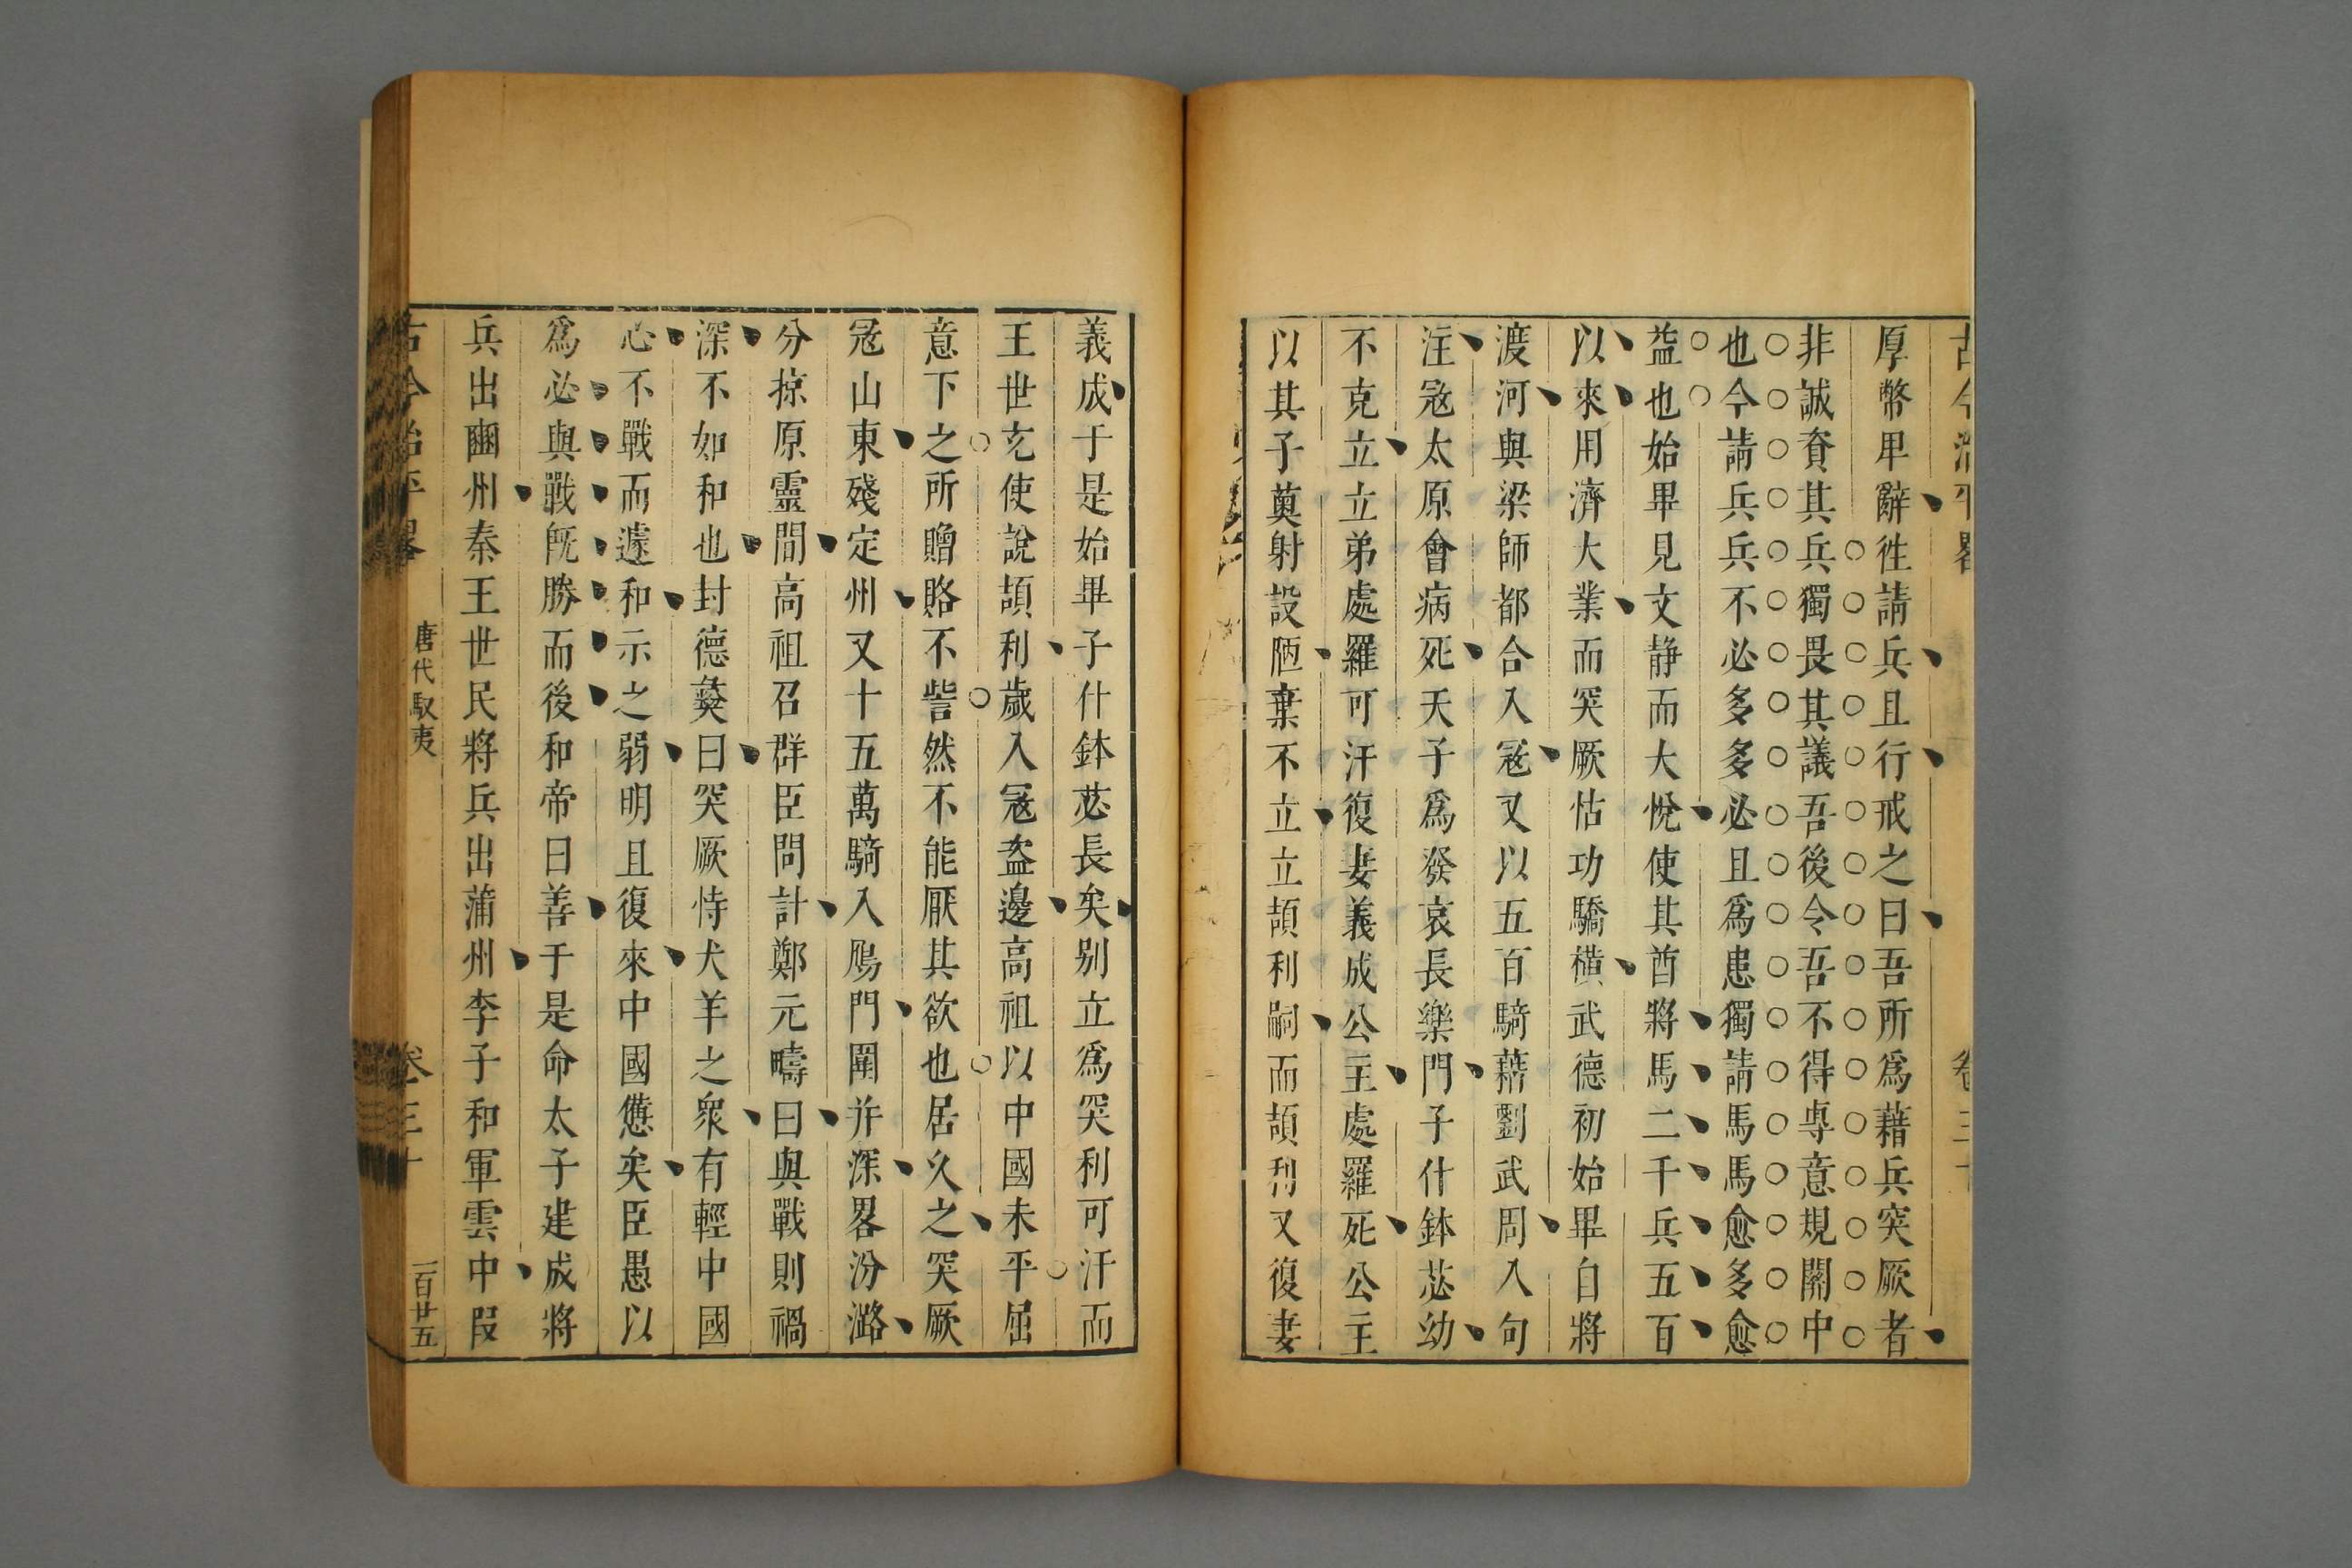 古今治平畧 卷三十
厚幣𤰞辭徃請兵且行戒之曰吾所爲藉兵突厥者
非誠資其兵獨畏其議吾後令吾不得専意規關中
也令請兵兵不必多多必且爲患獨請馬馬愈多愈
益也始畢見文静而大悅使其酋將馬二千兵五百
以來用濟大業而突厥怙功驕橫武德初始畢自將
渡河與梁師都合入寇又以五百騎藉劉武周入句
注寇太原會病死天子爲發哀長樂門子什鉢苾幼
不克立立弟處羅可汗復妻義成公主處羅死公主
以其子奠射設陋棄不立立頡利嗣而頡利又復妻
義成于是始畢子什鉢苾長矣别立爲突利可汗而
王世充使說頡利歲入寇盗邊高祖以中國未平屈
意下之所贈賂不訾然不能厭其欲也居久之突厥
寇山東殘定州又十五萬騎入鴈門圍并深畧汾潞
分掠原靈間高祖召群臣問計鄭元疇曰與戰則禍
深不如和也封德彝曰突厥恃犬羊之衆有輕中國
心不戰而遽和示之弱明且復來中國憊矣臣愚以
爲必與戰既勝而後和帝曰善于是命太子建成將
兵出豳州秦王世民將兵出蒲州李子和軍雲中叚
古今治平畧 唐代馭夷 卷三十 一百廿五